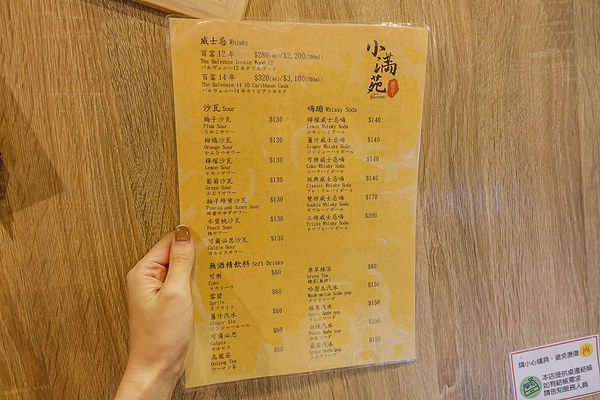 威士忌 Whisky
百富 12 年 $280(杯)/$2,200(700ml)
The Balvenie Double Wood 12
バルヴェニー12年ダブルウッド
百富 14 年 $320(杯)/$3,100(700ml)
The Balvenie 14 YO Caribbean Cask
バルヴェニー14年カリビアンカスク
小滿苑
沙瓦 Sour
梅子沙瓦 $130
Plum Sour
うめこサワー
柑橘沙瓦 $130
Orange Sour
かんきつサワー
檸檬沙瓦 $130
Lemon Sour
レモンサワー
葡萄沙瓦 $130
Grape Sour
ぶどうサワー
柚子蜂蜜沙瓦 $130
蜂蜜のゆずサワー
水蜜桃沙瓦 $130
Peach Sour
桃サワー
可爾必思沙瓦 $130
Calpis Sour
カルピスサワー
嗨頭 Whisky Soda
檸檬威士忌嗨 $140
Lemon Whisky Soda
レモンハイボール
薑汁威士忌嗨 $140
Ginger Whisky Soda
ジンジャーハイボール
可樂威士忌嗨 $140
Coke Whisky Soda
コークハイボール
經典威士忌嗨 $140
Classic Whisky Soda
プレミアムハイボール
雙倍威士忌嗨 $170
Double Whisky Soda
ダブルハイボール
三倍威士忌嗨 $200
Triple Whisky Soda
トリプルハイボール
無酒精飲料 Soft Drinks
可樂 $60
Coke
コカコーラ
雪碧 $60
Sprite
スプライト
薑汁汽水 $60
Ginger Ale
ジンジャーエール
可爾必思 $60
Calpis
カルピス
烏龍茶 $60
Oolong Tea
ウーロン茶
原萃綠茶 $60
Green Tea
哈密瓜汽水 $150
Musk-melon Soda pop
メロンソーダ
蘋果汽水 $150
Apple Soda pop
りんごソーダ
白桃汽水 $150
Peach Soda pop
白桃ソーダ
葡萄汽水 $150
Grape Soda pop
ぶどうソーダ
請小心爐具，避免燙傷
本店提供桌邊結帳
如有結帳需求
請告知服務人員